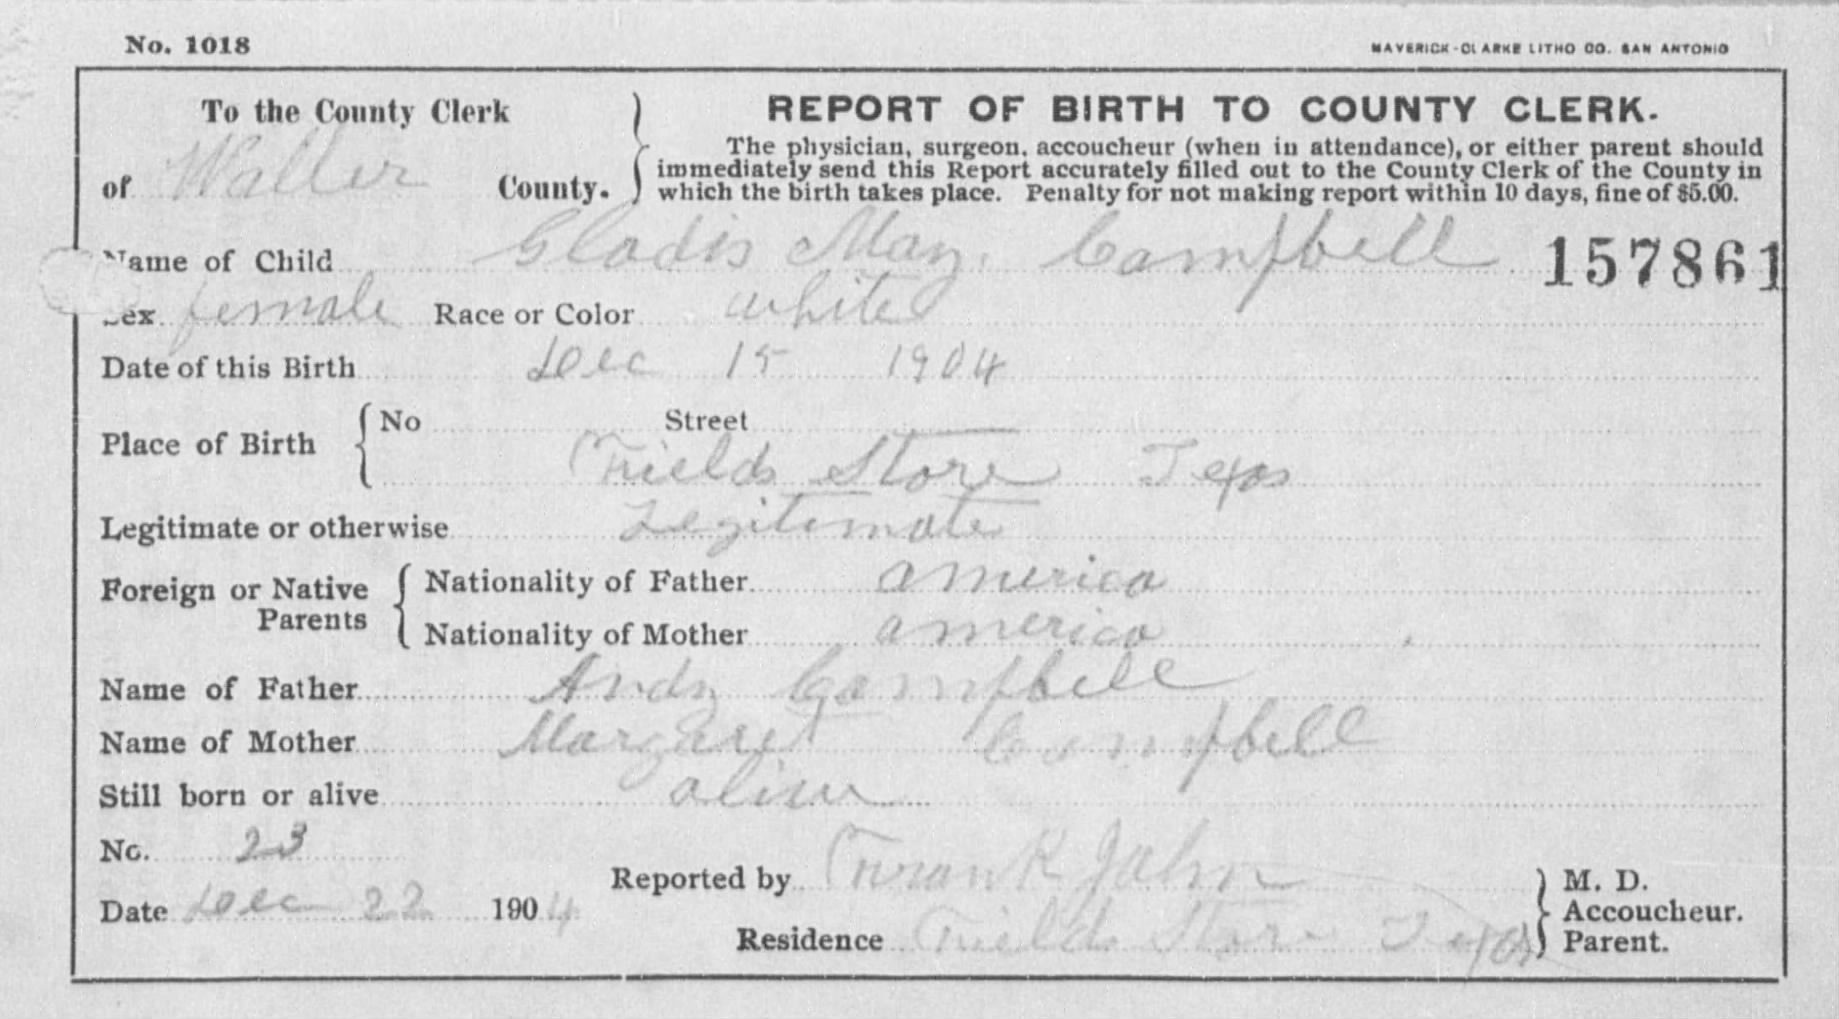 No. 1018
MAVERICK-CLARKE LITHO CO. SAN ANTONIO
To the County Clerk
of Waller County.
REPORT OF BIRTH TO COUNTY CLERK.
The physician, surgeon, accoucheur (when in attendance), or either parent should
immediately send this Report accurately filled out to the County Clerk of the County in
which the birth takes place. Penalty for not making report within 10 days, fine of $5.00.
Name of Child Gladis May. Campbell 157861
Sex female Race or Color white
Date of this Birth Dec 15 1904
Place of Birth No Street
Fields Store Texas
Legitimate or otherwise Legitimate
Foreign or Native Parents
Nationality of Father america
Nationality of Mother america
Name of Father Andy Campbell
Name of Mother Margaret Campbell
Still born or alive alive
No. 23
Reported by Frank Jahn M. D.
Date Dec 22 1904 Accoucheur.
Residence Fields Store Texas Parent.